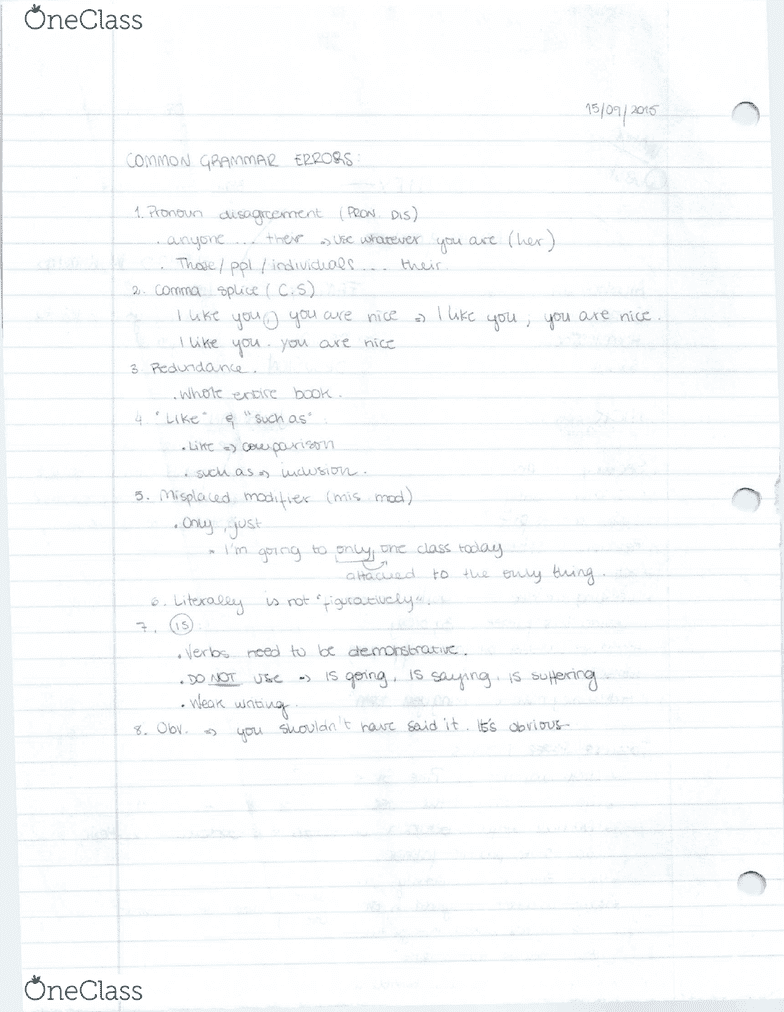 OneClass
15/09/2015
COMMON GRAMMAR ERRORS:
1. Pronoun disagreement (PRON. DIS)
. anyone ... their → use whatever you are (her)
. Those / ppl / individuals ... their.
2. Comma splice (C.S)
I like you, you are nice → I like you; you are nice.
I like you. you are nice
3. Redundance.
. Whole entire book.
4. "Like" & "such as"
. Like → comparison
. such as → inclusion.
5. Misplaced modifier (mis mod)
. Only, just
I'm going to only one class today
attached to the only thing.
6. Literally is not "figuratively".
7. IS
. Verbs need to be demonstrative.
. DO NOT use → is going, is saying, is suffering
. Weak writing.
8. Obv. → you shouldn't have said it. It's obvious
OneClass